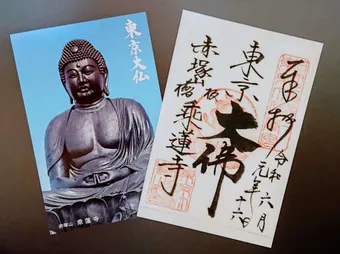 東京大仏
赤塚山 乗蓮寺
奉拝
令和元年六月
十六日
東京
大佛
赤塚
乗蓮寺